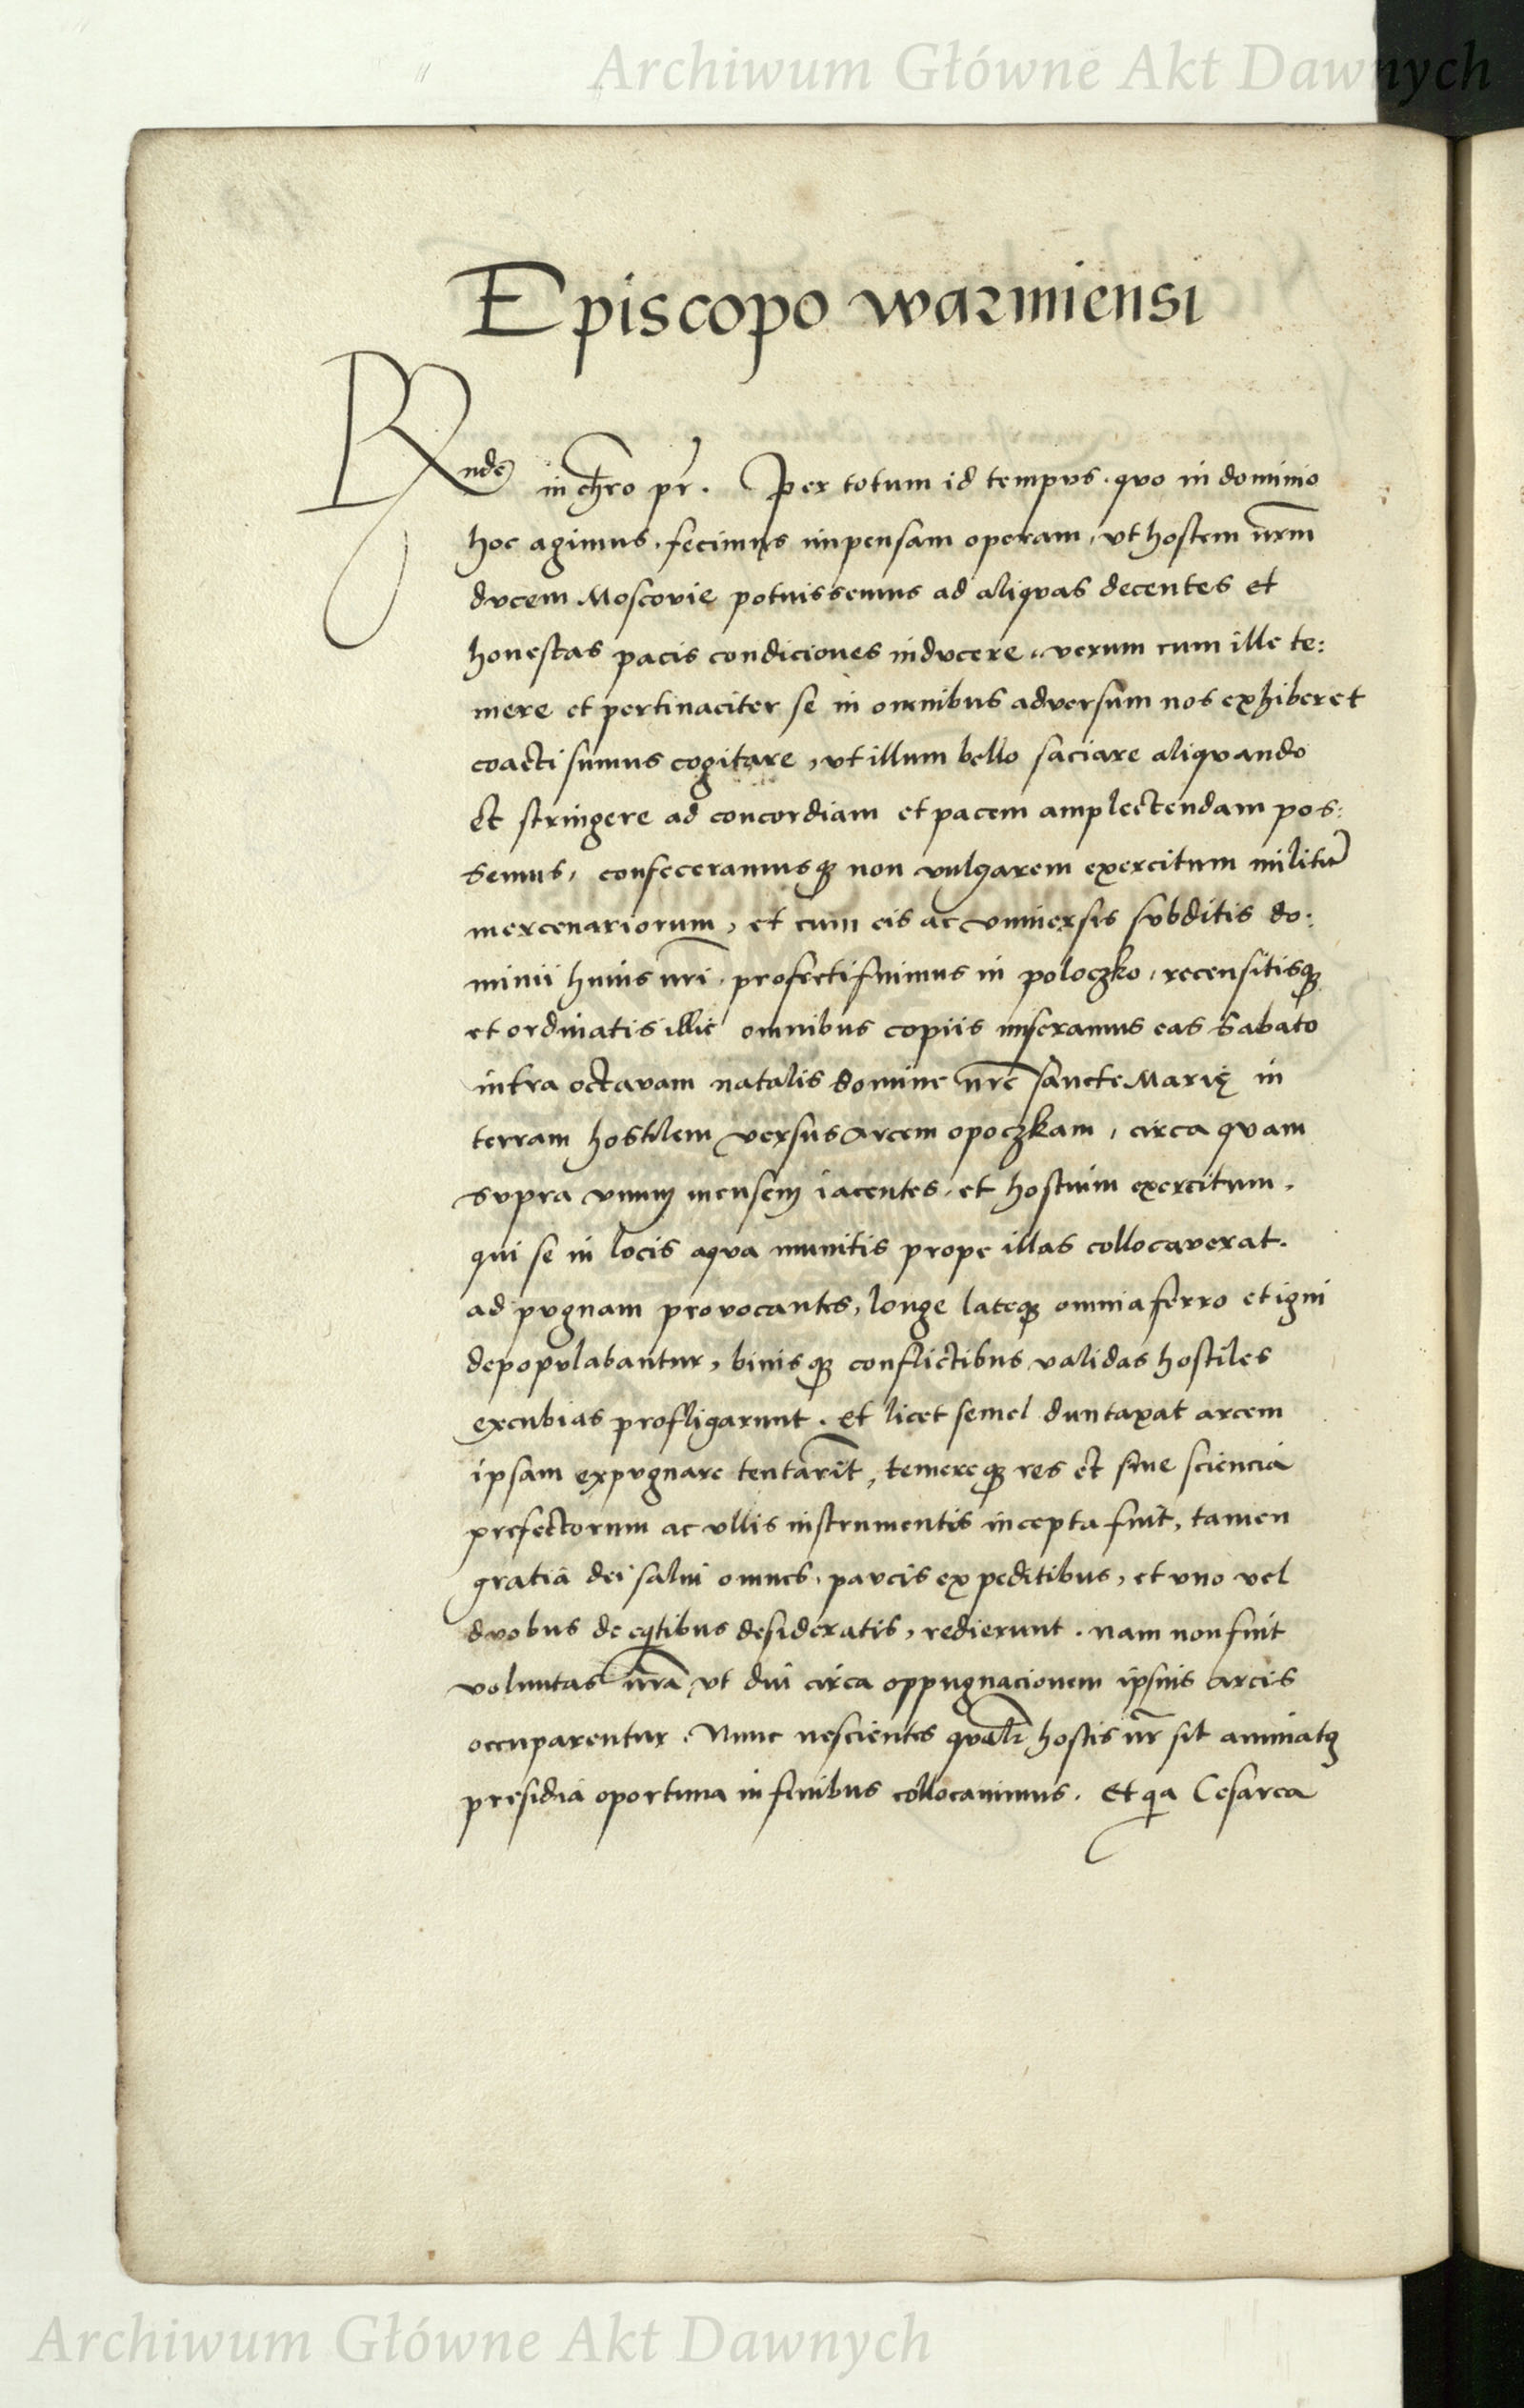 Archiwum Główne Akt Dawnych
Episcopo warmiensi
Rnde in chro pr. Per totum id tempus. quo in dominio
hoc agimus. fecimus impensam operam, vt hostem nrm
ducem Moscovie potuissemus ad aliquas decentes et
honestas pacis condiciones inducere. verum cum ille te:
mere et pertinaciter se in omnibus adversum nos exhiberet
coacti sumus cogitare, vt illum bello saciare aliquando
Et stringere ad concordiam et pacem amplectendam pos:
semus, confeceramusq non vulgarem exercitum militu
mercenariorum, et cum eis ac vniversis subditis do:
minii huius nri. profecti fuimus in poloczko, recensitisq
et ordinatis illic omnibus copiis miseramus eas Sabato
intra octavam natalis domine nre sancte Marię in
terram hostilem versus arcem opoczkam, circa quam
supra vnum mensem iacentes. et hostium exercitum.
qui se in locis aqua munitis prope illas collocaverat.
ad pugnam provocantes, longe lateq omnia ferro et igni
depopulabantur, binisq conflictibus validas hostiles
excubias profligarunt. et licet semel duntaxat arcem
ipsam expugnare tentarit, temereq res et sine sciencia
prefectorum ac vllis instrumentis incepta fuit, tamen
gratia dei salui omnes. paucis ex peditibus, et vno vel
duobus de eqtibus desideratis, redierunt. nam non fuit
voluntas nra vt diu circa oppugnacionem ipsius arcis
occuparentur. Nunc nescientes qualr hostis nr sit animatq
presidia oportuna in finibus collocavimus. Et qa Cesarea
Archiwum Główne Akt Dawnych